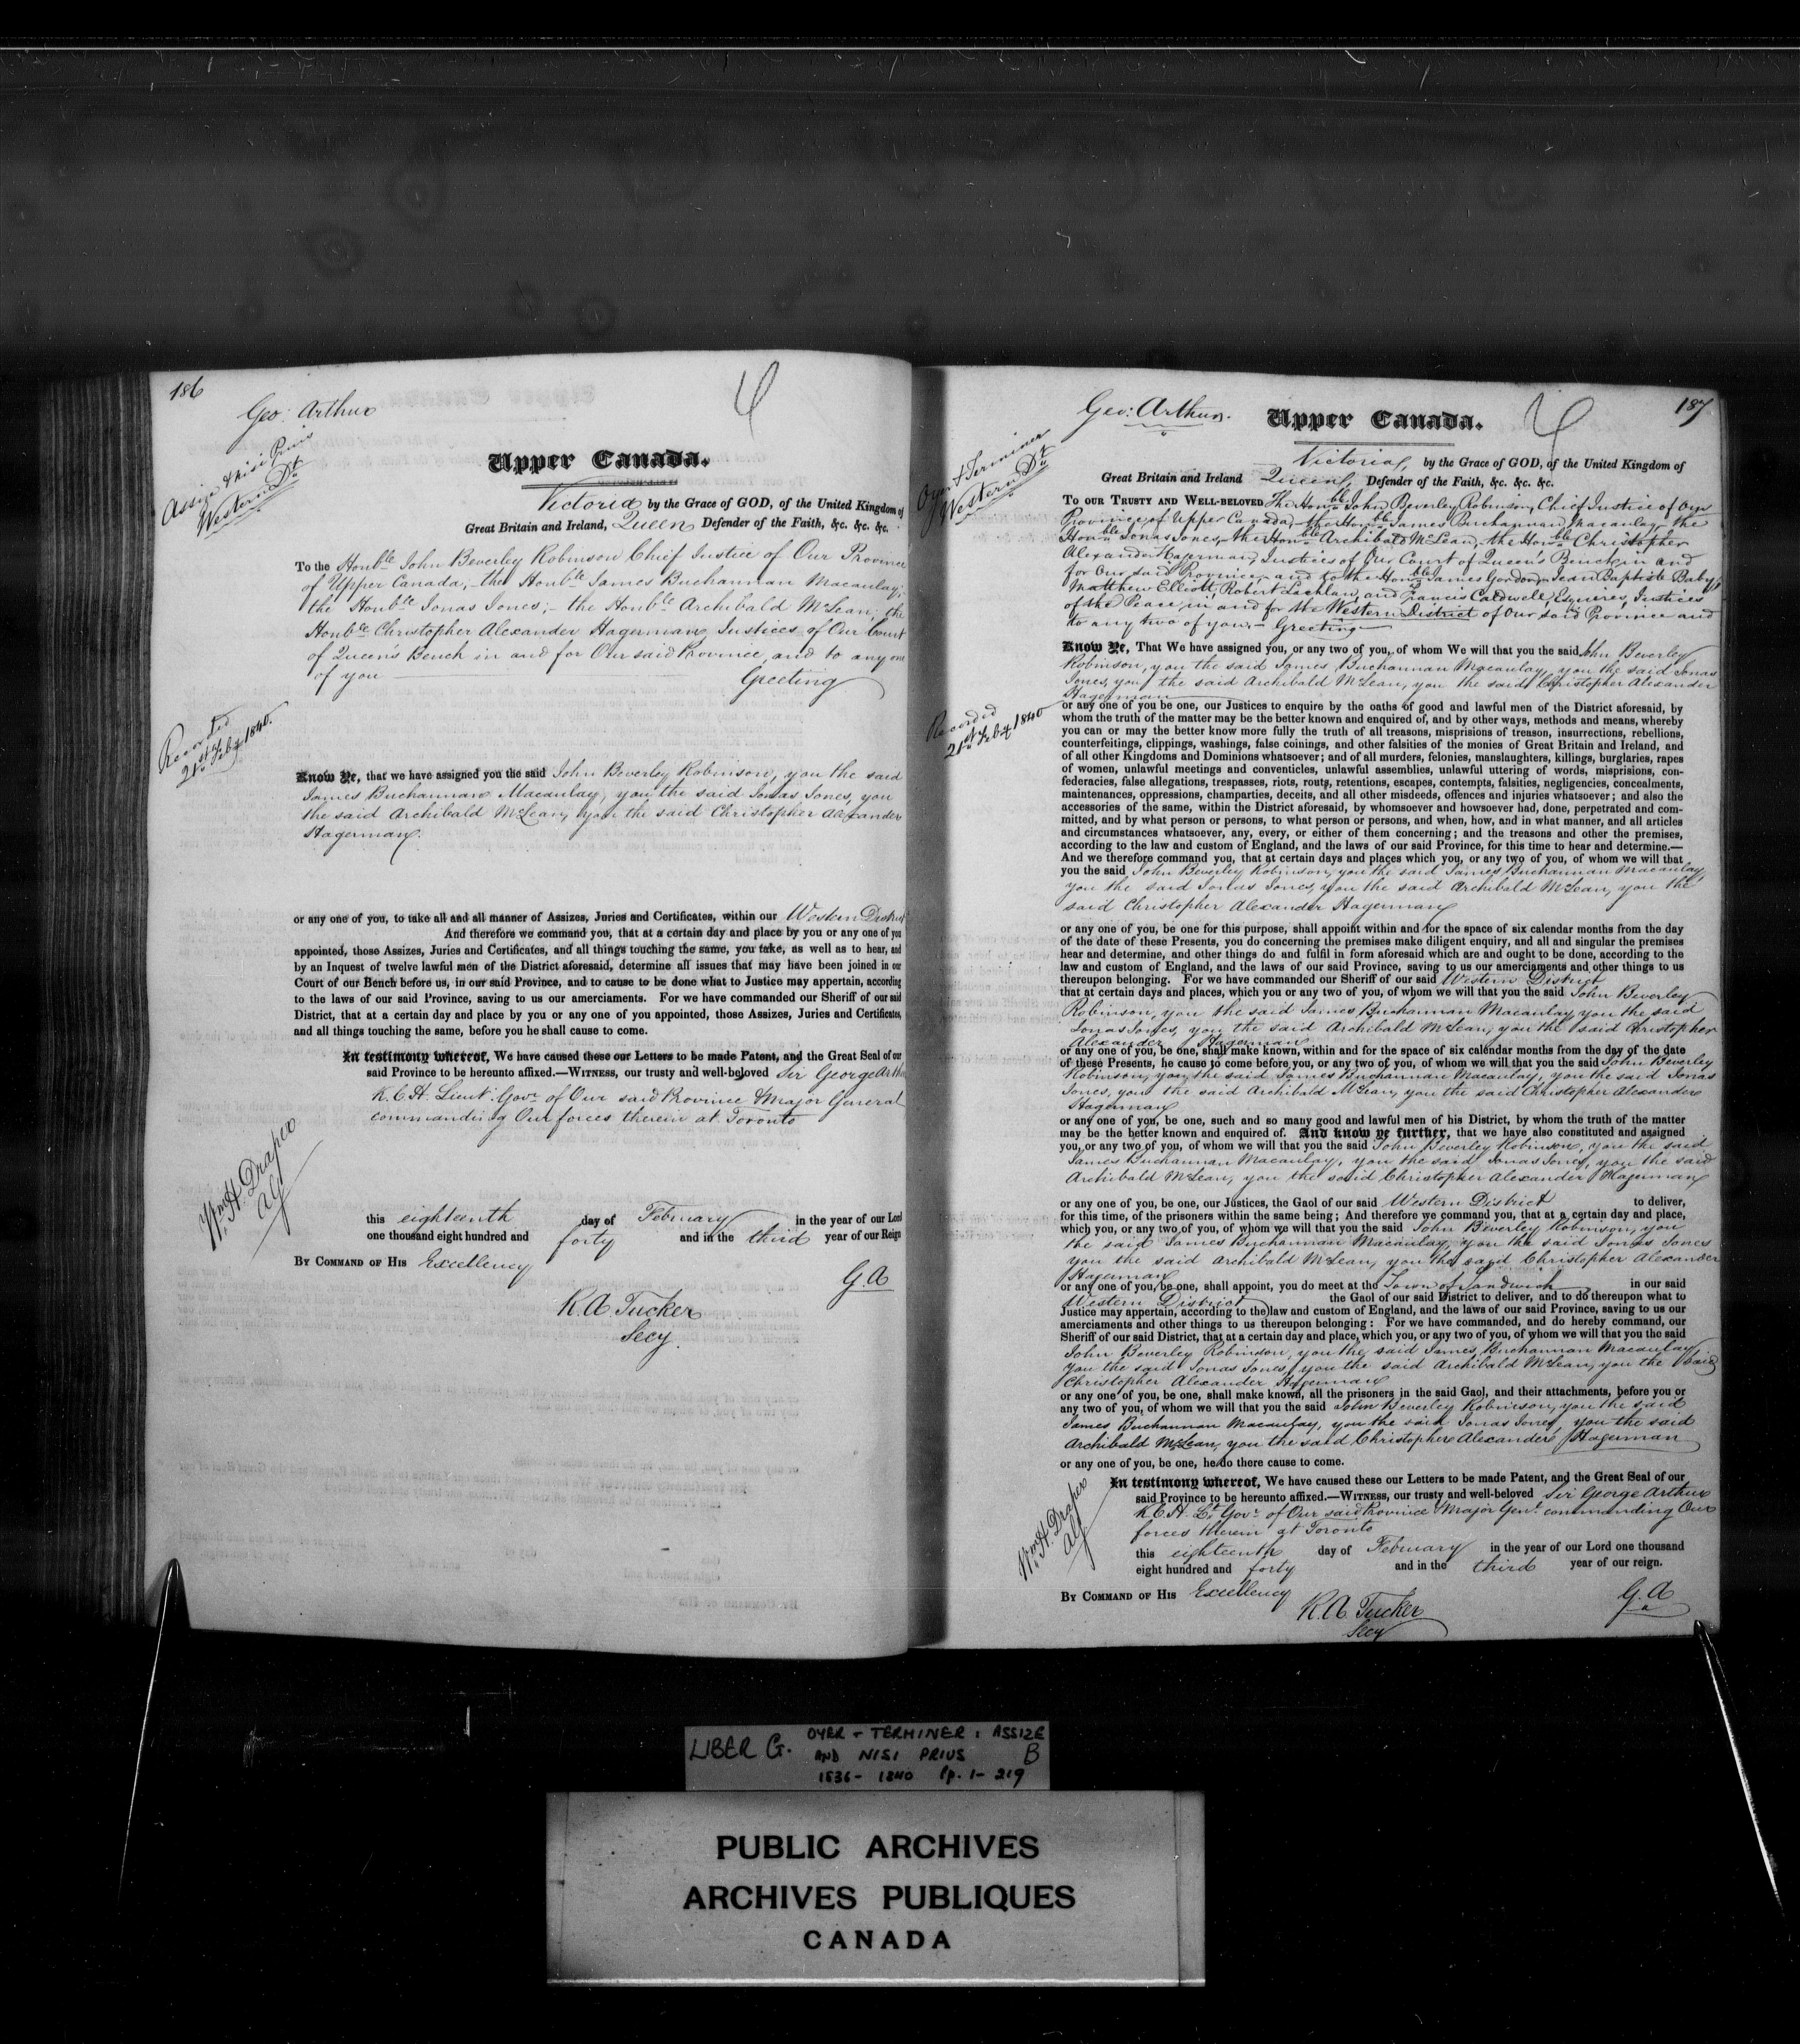 186
Geo: Arthur
Assize & Nisi Prius
Western Dt.
Upper Canada.
Victoria by the Grace of GOD, of the United Kingdom of
Great Britain and Ireland, Queen Defender of the Faith, &c. &c. &c.
To the Honble John Beverley Robinson Chief Justice of Our Province
of Upper Canada,- the Honble James Buchannan Macaulay;
the Honble Jonas Jones;- the Honble Archibald McLean; the
Honble Christopher Alexander Hagerman, Justices of Our Court
of Queen's Bench in and for Our said Province, and to any one
of you Greeting
Recorded
21st Feby 1840.
Know Ye, that we have assigned you the said John Beverley Robinson, you the said
James Buchannan Macaulay, you the said Jonas Jones, you
the said Archibald McLean, you the said Christopher Alexander
Hagerman.
or any one of you, to take all and all manner of Assizes, Juries and Certificates, within our Western District
And therefore we command you, that at a certain day and place by you or any one of you
appointed, those Assizes, Juries and Certificates, and all things touching the same, you take, as well as to hear, and
by an Inquest of twelve lawful men of the District aforesaid, determine all issues that may have been joined in our
Court of our Bench before us, in our said Province, and to cause to be done what to Justice may appertain, according
to the laws of our said Province, saving to us our amerciaments. For we have commanded our Sheriff of our said
District, that at a certain day and place by you or any one of you appointed, those Assizes, Juries and Certificates,
and all things touching the same, before you he shall cause to come.
In testimony whereof, We have caused these our Letters to be made Patent, and the Great Seal of our
said Province to be hereunto affixed.—WITNESS, our trusty and well-beloved Sir George Arthur
K.C.H. Lieut: Govr of Our said Province & Major General
commanding Our forces therein at Toronto
Wm. H. Draper
AG
this eighteenth day of February in the year of our Lord
one thousand eight hundred and forty and in the third year of our Reign
BY COMMAND OF HIS Excellency
G.A
R.A Tucker
Secy.
187
Geo: Arthur.
Oyer & Terminer
Western Dt.
Upper Canada.
Victoria, by the Grace of GOD, of the United Kingdom of
Great Britain and Ireland Queen, Defender of the Faith, &c. &c. &c.
TO OUR TRUSTY AND WELL-BELOVED The Honble John Beverley Robinson, Chief Justice of Our
Province of Upper Canada,- the Honble James Buchannan Macaulay,- the
Honble Jonas Jones,- the Honble Archibald McLean,- the Honble Christopher
Alexander Hagerman, Justices of Our Court of Queen's Bench in and
for Our said Province,- and to the Honble James Gordon,- Jean Baptiste Baby,
Matthew Elliott, Robert Lachlan, and Francis Caldwell, Esquires, Justices
of the Peace, in and for the Western District of Our said Province and
to any two of you,- Greeting
Know Ye, That We have assigned you, or any two of you, of whom We will that you the said John Beverley
Robinson, you the said James Buchannan Macaulay, you the said Jonas
Jones, you the said Archibald McLean, you the said Christopher Alexander
Hagerman
Recorded
21st Feby 1840
or any one of you be one, our Justices to enquire by the oaths of good and lawful men of the District aforesaid, by
whom the truth of the matter may be the better known and enquired of, and by other ways, methods and means, whereby
you can or may the better know more fully the truth of all treasons, misprisions of treason, insurrections, rebellions,
counterfeitings, clippings, washings, false coinings, and other falsities of the monies of Great Britain and Ireland, and
of all other Kingdoms and Dominions whatsoever; and of all murders, felonies, manslaughters, killings, burglaries, rapes
of women, unlawful meetings and conventicles, unlawful assemblies, unlawful uttering of words, misprisions, con-
federacies, false allegations, trespasses, riots, routs, retentions, escapes, contempts, falsities, negligencies, concealments,
maintenances, oppressions, champarties, deceits, and all other misdeed, offences and injuries whatsoever; and also the
accessories of the same, within the District aforesaid, by whomsoever and howsoever had, done, perpetrated and com-
mitted, and by what person or persons, to what person or persons, and when, how, and in what manner, and all articles
and circumstances whatsoever, any, every, or either of them concerning; and the treasons and other the premises,
according to the law and custom of England, and the laws of our said Province, for this time to hear and determine.—
And we therefore command you, that at certain days and places which you, or any two of you, of whom we will that
you the said John Beverley Robinson, you the said James Buchannan Macaulay,
you the said Jonas Jones, you the said Archibald McLean, you the
said Christopher Alexander Hagerman
or any one of you, be one for this purpose, shall appoint within and for the space of six calendar months from the day
of the date of these Presents, you do concerning the premises make diligent enquiry, and all and singular the premises
hear and determine, and other things do and fulfil in form aforesaid which are and ought to be done, according to the
law and custom of England, and the laws of our said Province, saving to us our amerciaments and other things to us
thereupon belonging. For we have commanded our Sheriff of our said Western District
that at certain days and places, which you or any two of you, of whom we will that you the said John Beverley
Robinson, you the said James Buchannan Macaulay, you the said
Jonas Jones, you the said Archibald McLean, you the said Christopher
Alexander Hagerman
or any one of you, be one, shall make known, within and for the space of six calendar months from the day of the date
of these Presents, he cause to come before you, or any two of you, of whom we will that you the said John Beverley
Robinson, you the said James Buchannan Macaulay, you the said Jonas
Jones, you the said Archibald McLean, you the said Christopher Alexander
Hagerman
or any one of you, be one, such and so many good and lawful men of his District, by whom the truth of the matter
may be the better known and enquired of. And know ye further, that we have also constituted and assigned
you, or any two of you, of whom we will that you the said John Beverley Robinson, you the said
James Buchannan Macaulay, you the said Jonas Jones, you the said
Archibald McLean, you the said Christopher Alexander Hagerman
or any one of you, be one, our Justices, the Gaol of our said Western District to deliver,
for this time, of the prisoners within the same being; And therefore we command you, that at a certain day and place,
which you, or any two of you, of whom we will that you the said John Beverley Robinson, you
the said James Buchannan Macaulay, you the said Jonas Jones
you the said Archibald McLean, you the said Christopher Alexander
Hagerman
or any one of you, be one, shall appoint, you do meet at the Town of Sandwich in our said
Western District the Gaol of our said District to deliver, and to do thereupon what to
Justice may appertain, according to the law and custom of England, and the laws of our said Province, saving to us our
amerciaments and other things to us thereupon belonging: For we have commanded, and do hereby command, our
Sheriff of our said District, that at a certain day and place, which you, or any two of you, of whom we will that you the said
John Beverley Robinson, you the said James Buchannan Macaulay
you the said Jonas Jones, you the said Archibald McLean, you the said
Christopher Alexander Hagerman
or any one of you, be one, shall make known, all the prisoners in the said Gaol, and their attachments, before you or
any two of you, of whom we will that you the said John Beverley Robinson, you the said
James Buchannan Macaulay, you the said Jonas Jones, you the said
Archibald McLean, you the said Christopher Alexander Hagerman
or any one of you, be one, he do there cause to come.
In testimony whereof, We have caused these our Letters to be made Patent, and the Great Seal of our
said Province to be hereunto affixed.—WITNESS, our trusty and well-beloved Sir George Arthur
K.C.H. Lt Govr of Our said Province Major Genl. commanding Our
forces therein at Toronto
Wm. H. Draper
AG
this eighteenth day of February in the year of our Lord one thousand
eight hundred and forty and in the third year of our reign.
BY COMMAND OF HIS Excellency
R.A. Tucker
Secy
G.A
LIBER G. OYER + TERMINER: ASSIZE
AND NISI PRIUS B
1836- 1840 Pp. 1- 219
PUBLIC ARCHIVES
ARCHIVES PUBLIQUES
CANADA